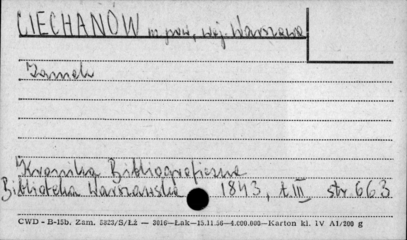 CIECHANÓW m. pow., woj. Warszawa
Zamek
Kronika Bibliograficzna
Biblioteka Warszawska 1843, t. III str. 663
CWD - B-15b. Zam. 5823/S/Łż — 2016—Łak—15.11.56—4.000.000—Karton kl. IV A1/200 g